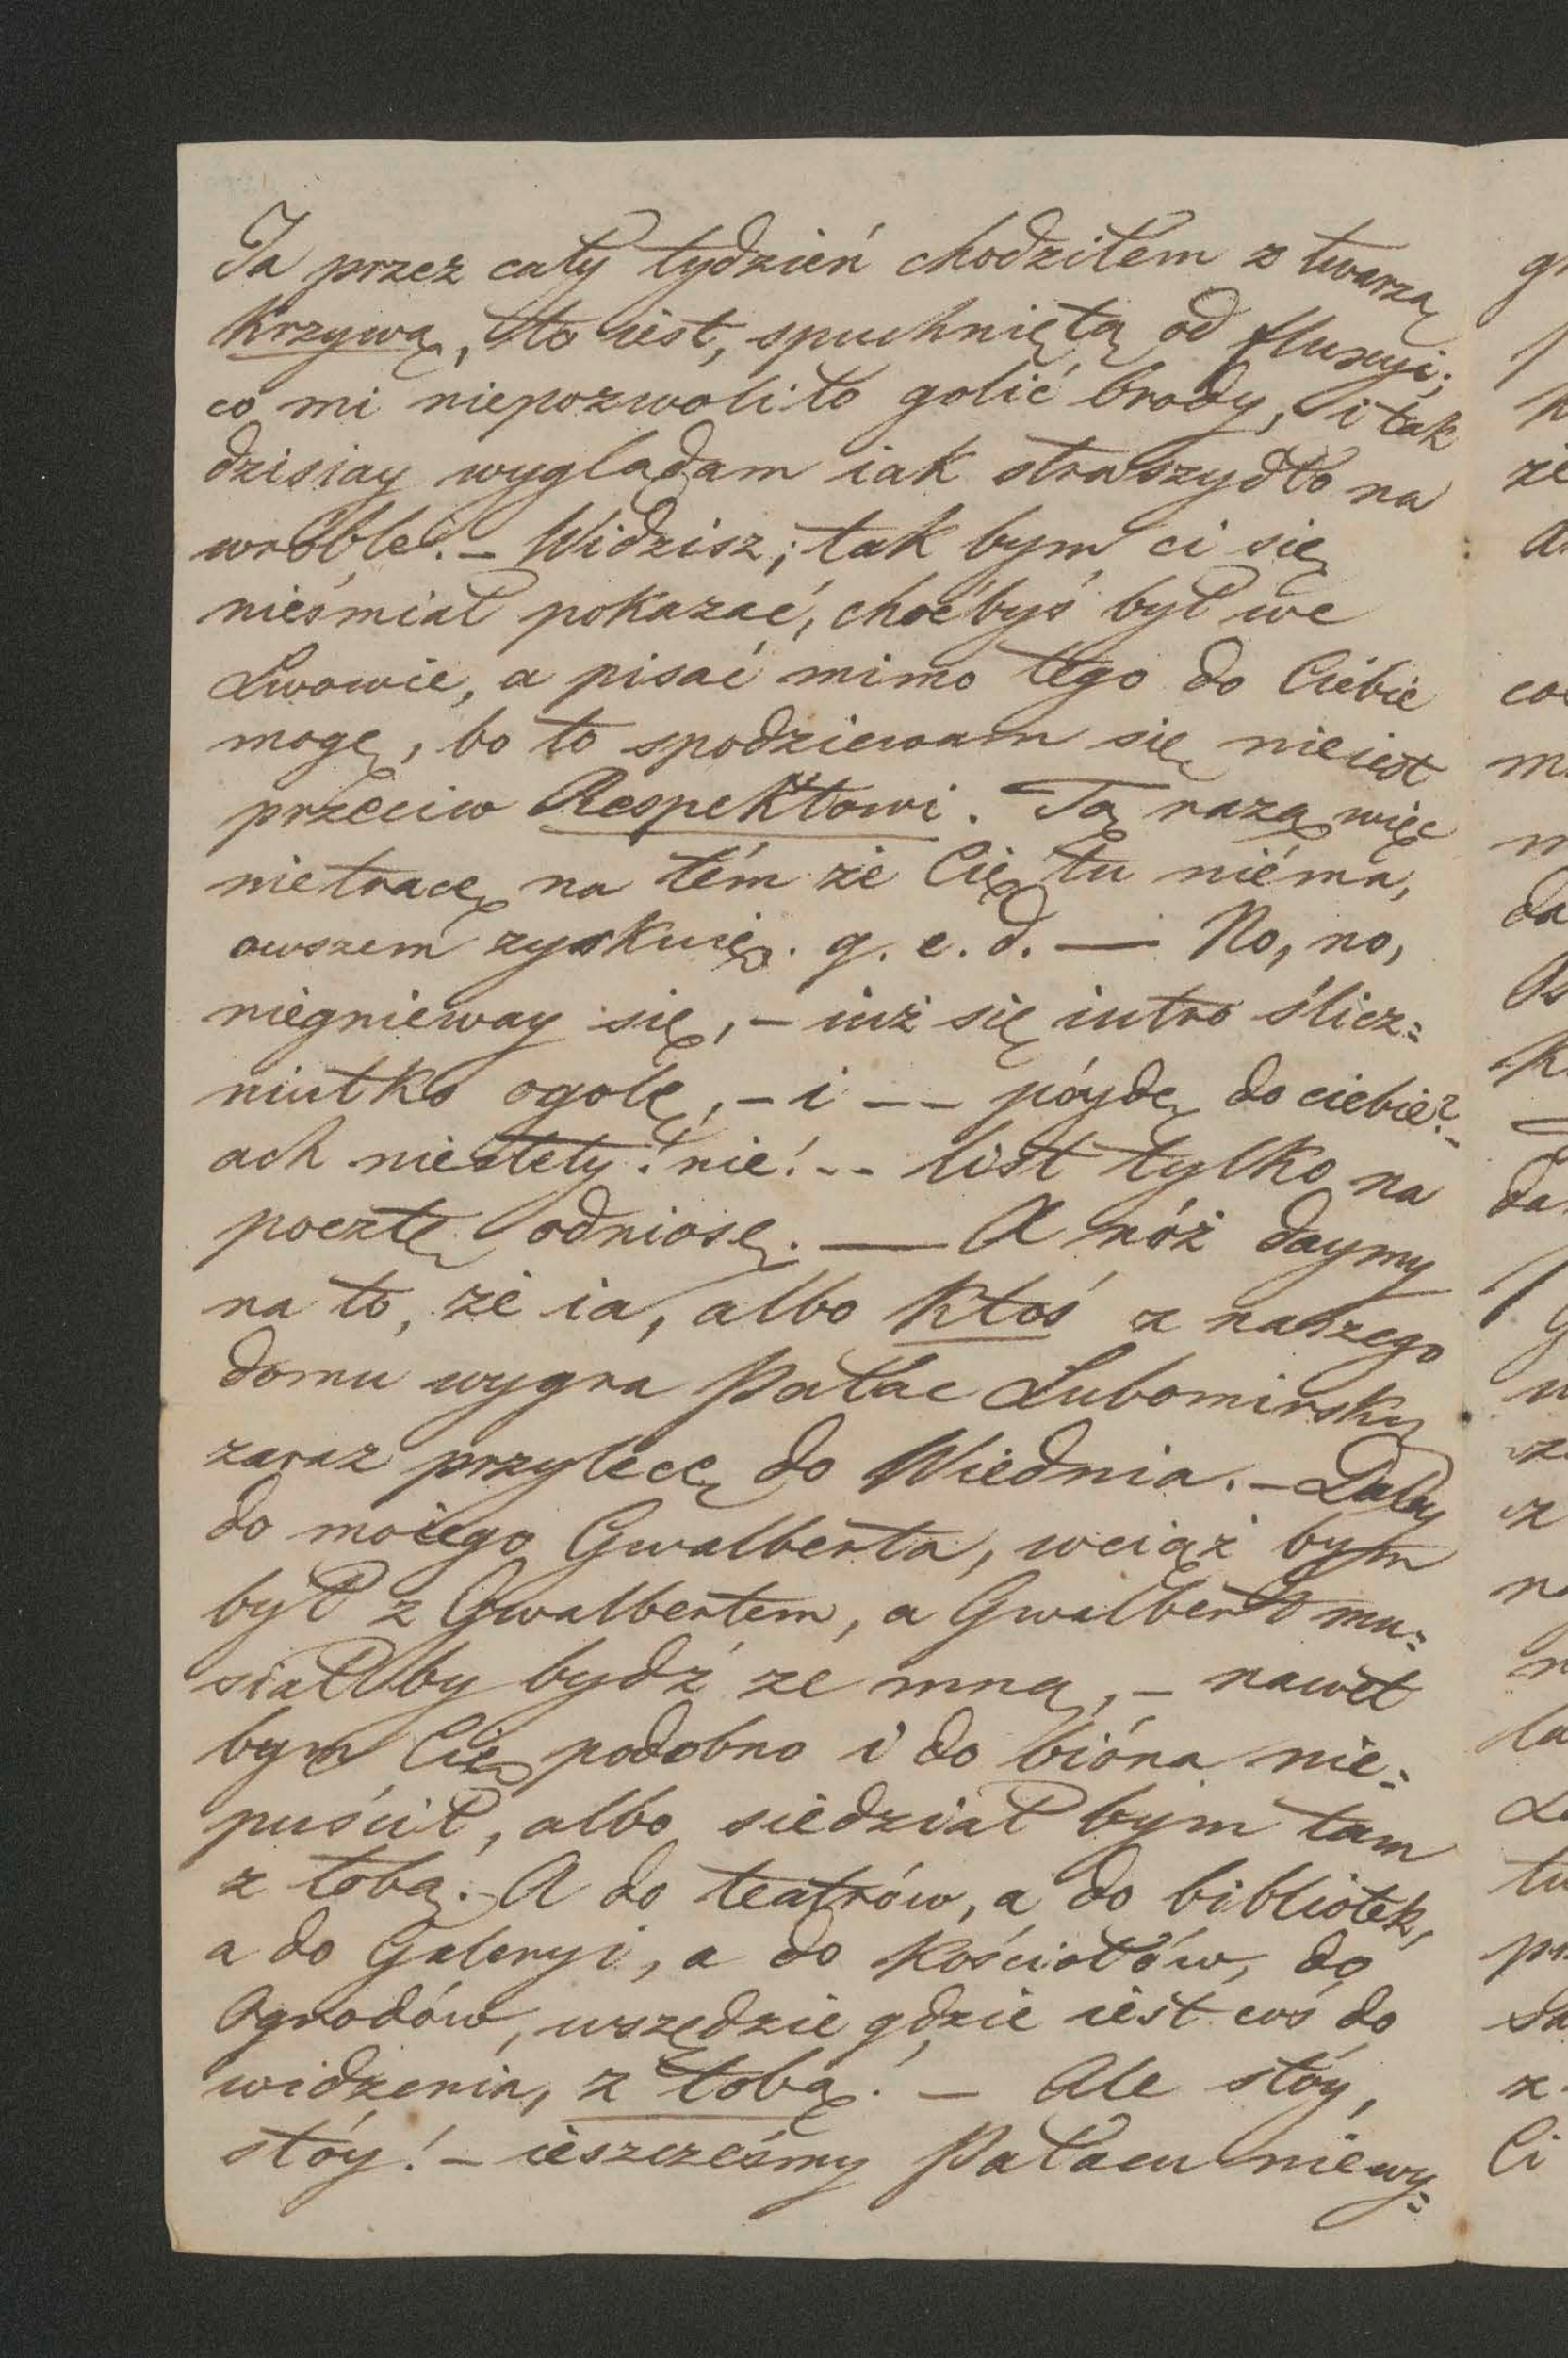 Ja przez cały tydzień chodziłem z twarzą
krzywą, to iest, spuchniętą od fluxyi;
co mi niepozwoliło golić brody, i tak
dzisiay wyglądam iak straszydło na
wróble. – Widzisz; tak bym ci się
nieśmiał pokazać, choćbyś był we
Lwowie, a pisać mimo tego do Ciebie
mogę, bo to spodziewam się nieiest
przeciw Respektowi. Tą razą więc
nietracę na tém że Cię tu niéma,
owszem zyskuię. q. e. d. — No, no,
niegnieway się, – iuż się iutro ślicz=
niutko ogolę, – i –– póydę do ciebie? –
ach niestety! nie! –– list tylko na
pocztę odniosę. — A nóż daymy
na to, że ia, albo ktoś z naszego
domu wygra Pałac Lubomirsky
zaraz przylecę do Wiednia. – Daley
do moiego Gwalberta, wciąż bym
był z Gwalbertem, a Gwalbert mu=
siałby bydź ze mną, – nawet
bym Cię podobno i do bióra nie=
puścił, albo siedział bym tam
z tobą. A do teatrów, a do bibliotek,
a do Galeryi, a do kościołów, do
Ogrodów, wszędzie gdzie iest coś do
widzenia, z tobą! – Ale stóy,
stóy! – ieszcześmy Pałacu niewy=